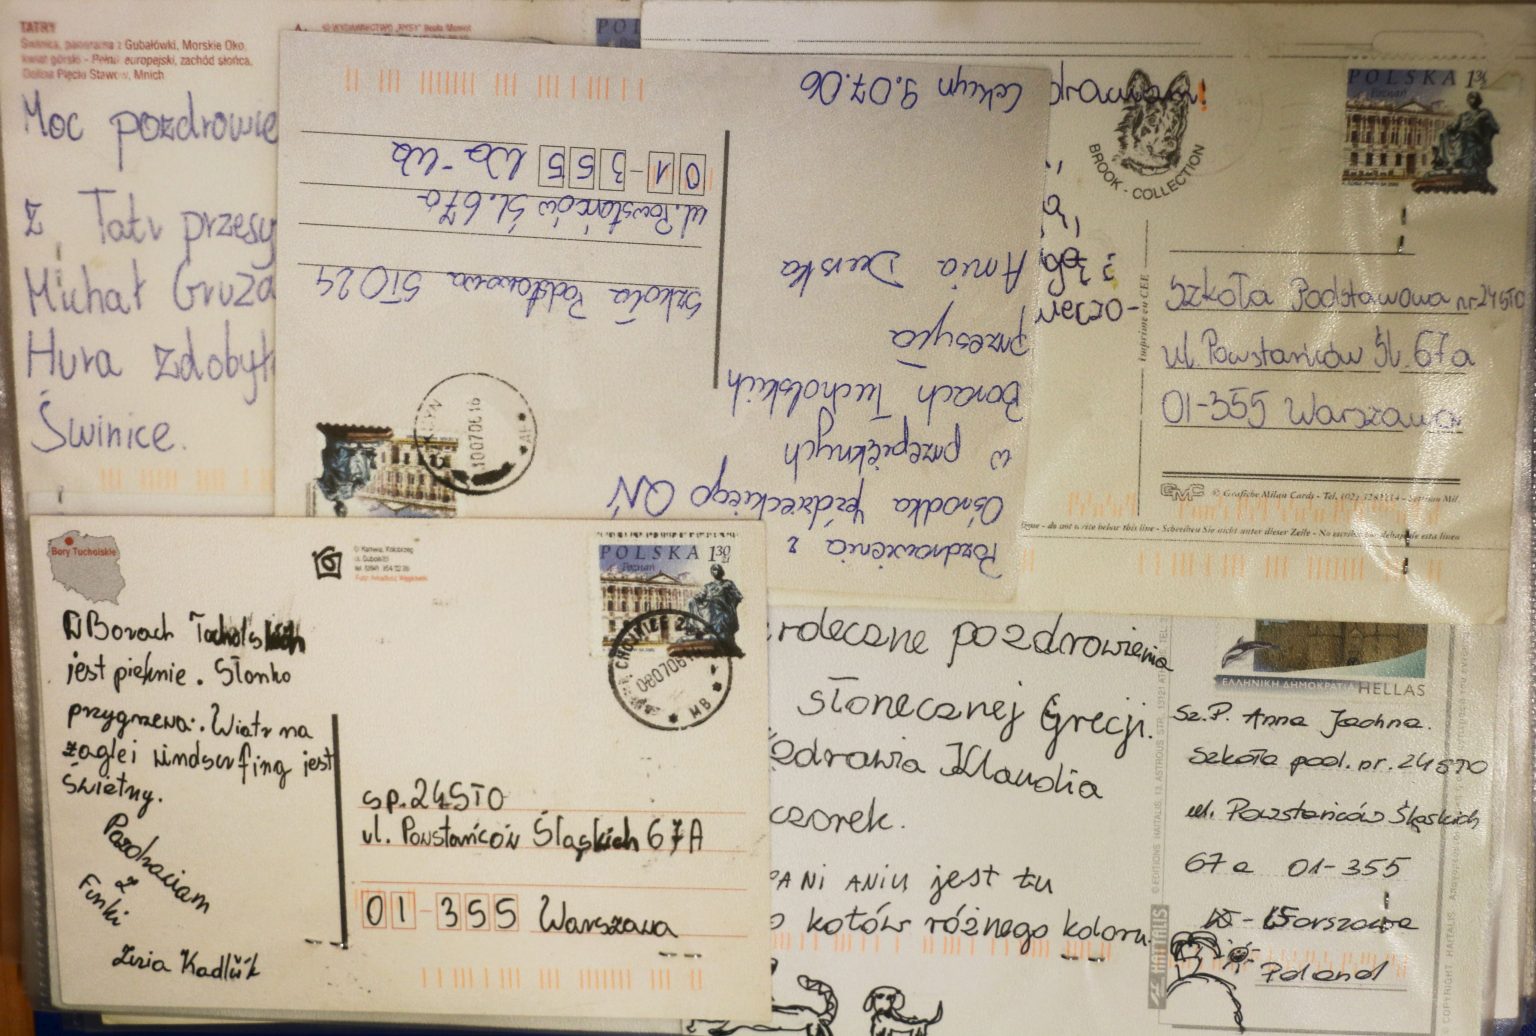 TATRY
Świnica, panorama z Gubałówki, Morskie Oko,
kwiat górski - Pełnik europejski, zachód słońca,
Dolina Pięciu Stawów, Mnich
Moc pozdrowie
z Tatr przesy
Michał Gruza
Hura zdobyt
Świnice.
© WYDAWNICTWO „RYSY"
Cekcyn 9.07.06
Pozdrowienia z
Ośrodka jeździeckiego QŃ
w przepięknych
Borach Tucholskich
przesyła
Ania Derska
Szkoła Podstawowa STO 24
ul. Powstańców Śl. 67a
01-355 Wa-wa
100706 16
BROOK - COLLECTION
POLSKA 1³⁰
Poznań
Imprime en CEE
Szkoła Podstawowa nr 24 STO
ul. Powstańców Śl. 67a
01-355 Warszawa
GMC © Grafiche Milan Cards - Tel. - Settimo Mil.
igne - do not write below this line - Schreiben Sie nicht unter dieser Zeile - No escriba de esta linea
Bory Tucholskie
W Borach Tucholskich
jest pięknie. Słonko
przygrzewa. Wiatr na
żaglei windsurfing jest
świetny.
Pozdraciam
z
Funki
Zuzia Kadlúk
POLSKA 1³⁰
Poznań
CHOJNICE 2
080706
MB
sp. 24 STO
ul. Powstańców Śląskich 67A
01-355 Warszawa
rdeczne pozdrowienia
słonecznej Grecji.
zdrawia Klaudia
czorek.
PANI ANIU jest tu
o kotów różnego koloru
ΕΛΛΗΝΙΚΗ ΔΗΜΟΚΡΑΤΙΑ HELLAS
Sz.P. Anna Jachna.
Szkoła pod. nr. 24 STO
ul. Powstańców Śląskich
67a 01-355
Warszawa
Poland
HAITALIS
© EDITIONS HAITALIS
COPYRIGHT HAITALIS